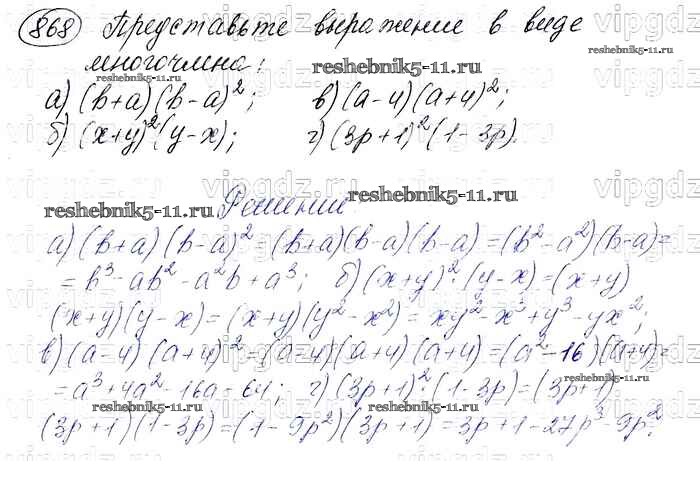 868 Представьте выражение в виде
многочлена:
reshebnik5-11.ru
а) (b+a)(b-a)²; в) (a-4)(a+4)²;
б) (x+y)²(y-x); г) (3p+1)²(1-3p).
reshebnik5-11.ru Решение reshebnik5-11.ru
а) (b+a)(b-a)² = (b+a)(b-a)(b-a) = (b²-a²)(b-a) =
= b³-ab²-a²b+a³; б) (x+y)²·(y-x) = (x+y)
(x+y)(y-x) = (x+y)(y²-x²) = xy²-x³+y³-yx²;
в) (a-4)(a+4)² = (a-4)(a+4)(a+4) = (a²-16)(a+4) =
= a³+4a²-16a-64; г) (3p+1)²(1-3p) = (3p+1)
(3p+1)(1-3p) = (1-9p²)(3p+1) = 3p+1-27p³-9p².